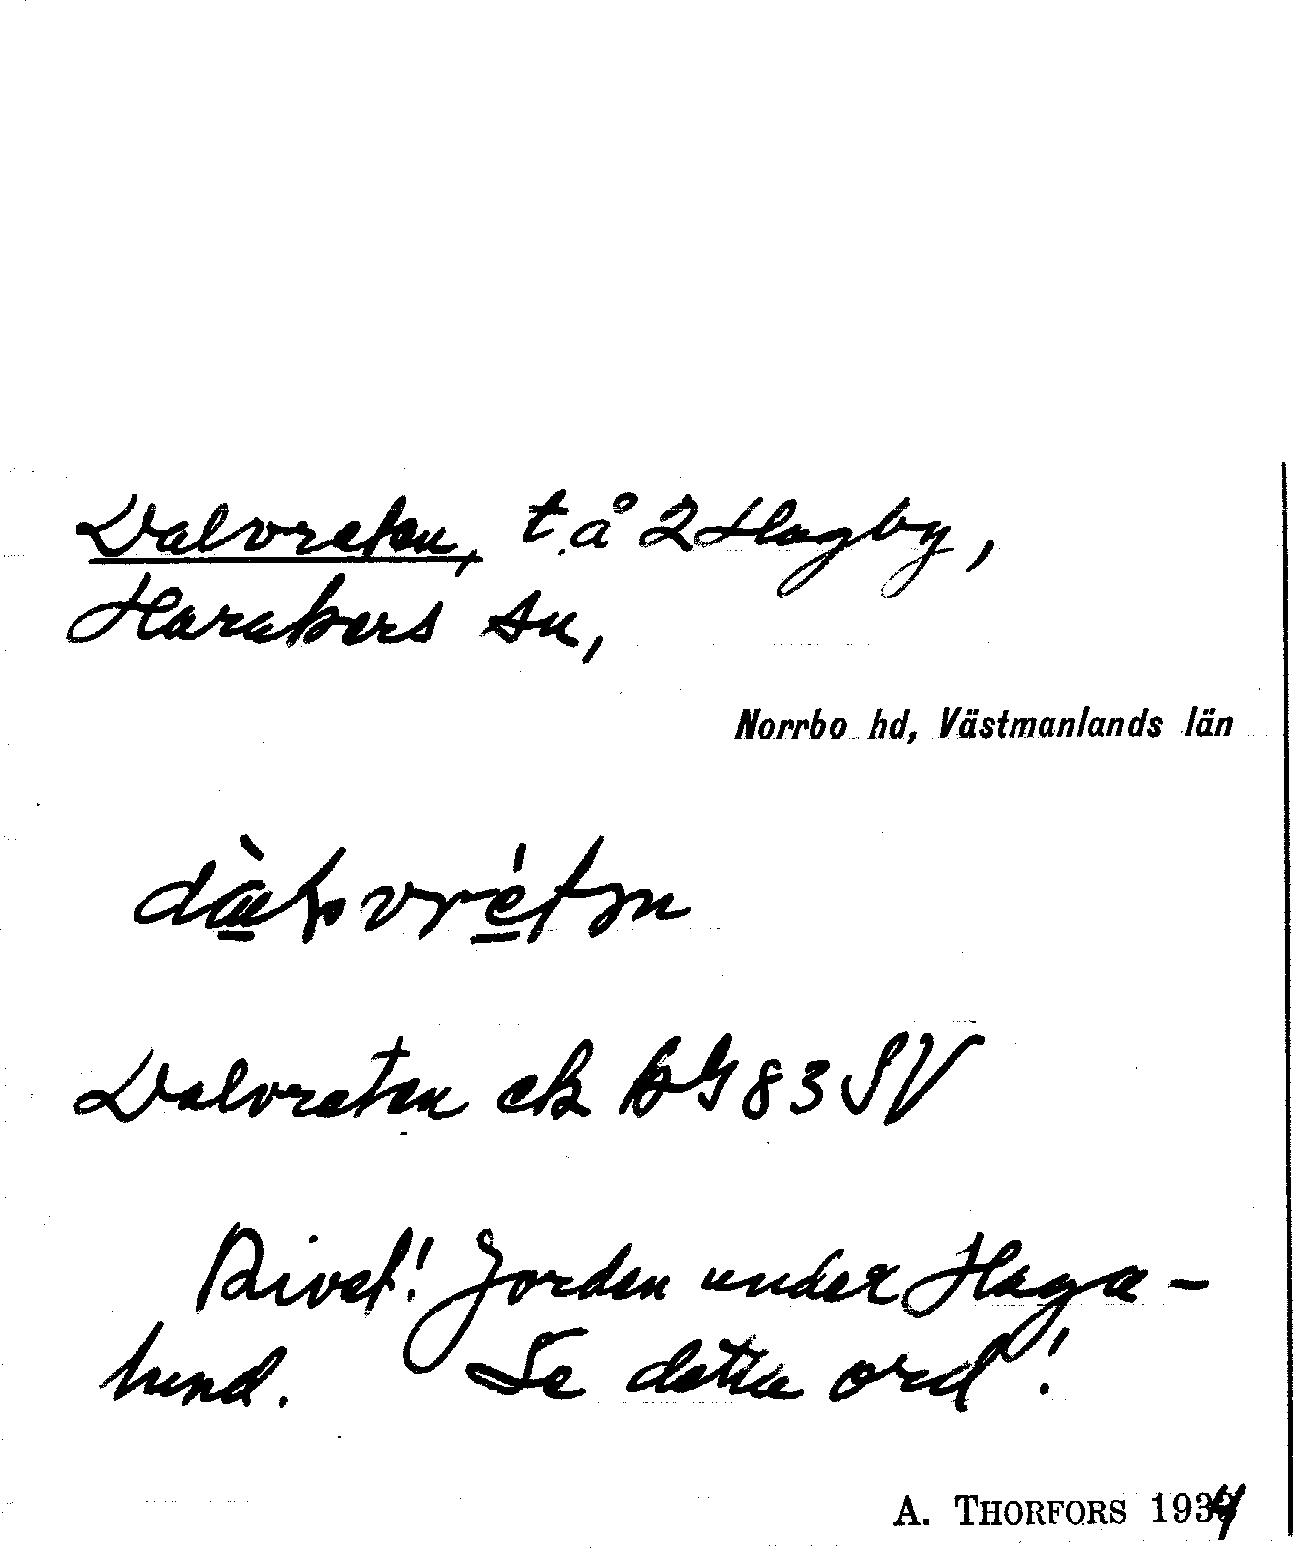 Dalvreten, t.å 2 Hagby,
Harakers sn,
Norrbo hd, Västmanlands län
Dalvreten ek bl 83 SV
Rivet! Jorden under Haga-
lund. Se detta ord!
A. THORFORS 1934